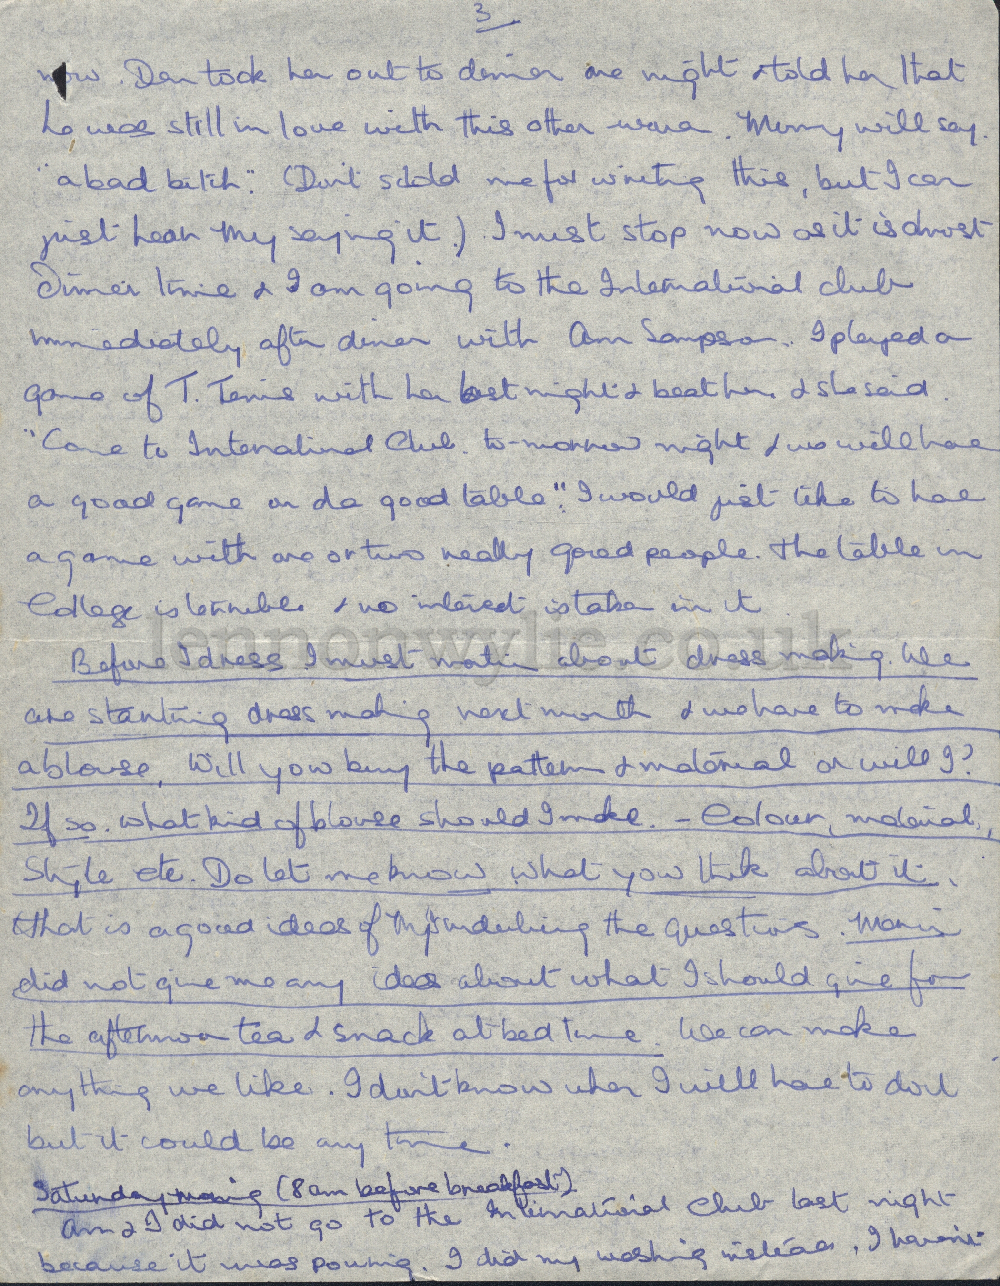 3
now. Den took her out to dinner one night & told her that
he was still in love with this other woman. Mummy will say.
"a bad bitch". (Don't scold me for writing this, but I can
just hear My saying it.) I must stop now as it is almost
Dinner time & I am going to the International club
immediately after dinner with Ann Sampson. I played a
game of T. Tennis with her last night & beat her, & she said.
"Come to International Club. to-morrow night & we will have
a good game on a good table". I would just like to have
a game with one or two really good people. The table in
College is terrible & no interest is taken in it
lennonwylie.co.uk
Before I dress I must about dress making. We
are starting dress making next month & we have to make
a blouse, Will you buy the pattern & material or will I?
If so. what kind of blouse should I make. - Colour, material,
Style etc. Do let me know what you think about it.
that is a good idea of My underlining the questions.
did not give me any ideas about what I should give for
the afternoon tea & snack at bed time. We can make
anything we like. I don't know when I will have to do it
but it could be any time.
Saturday morning (8 am before breakfast)
Ann & I did not go to the International Club last night
because it was pouring. I did my washing instead, I haven't